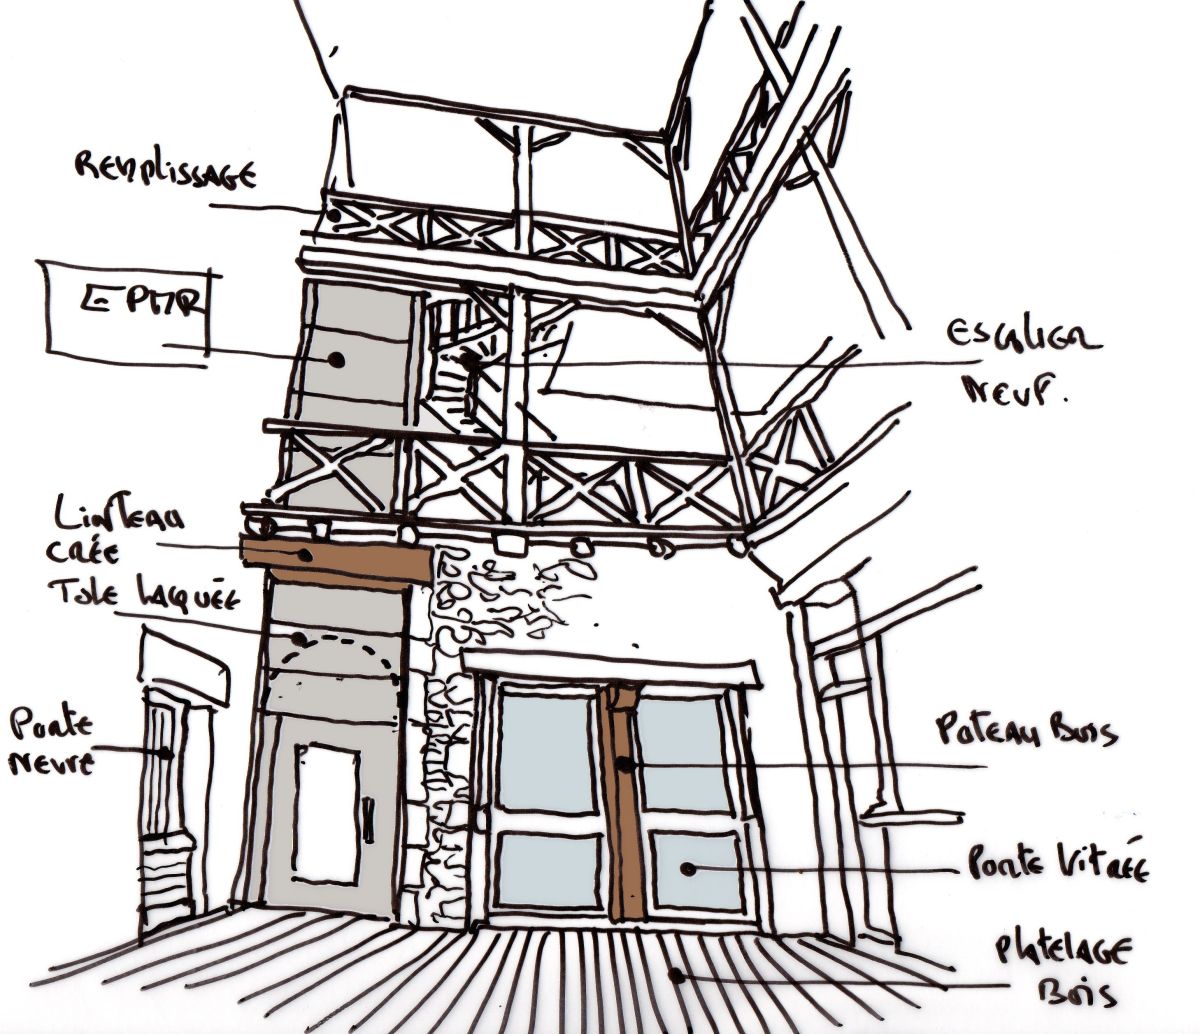 REMPLISSAGE
EPMR
ESCALIER
NEUF.
LINTEAU
CRÉE
TOLE LAQUÉE
PORTE
NEUVE
POTEAU BOIS
PORTE VITRÉE
PLATELAGE
BOIS